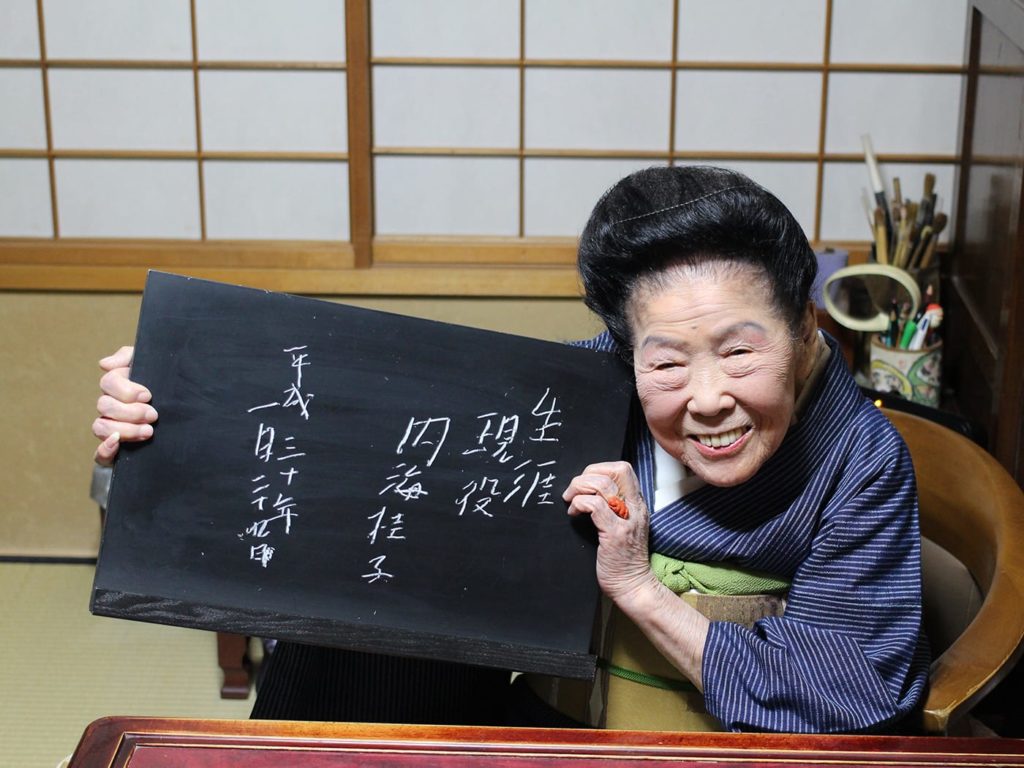 生涯
現役
内海桂子
平成三十年
一月二十四日